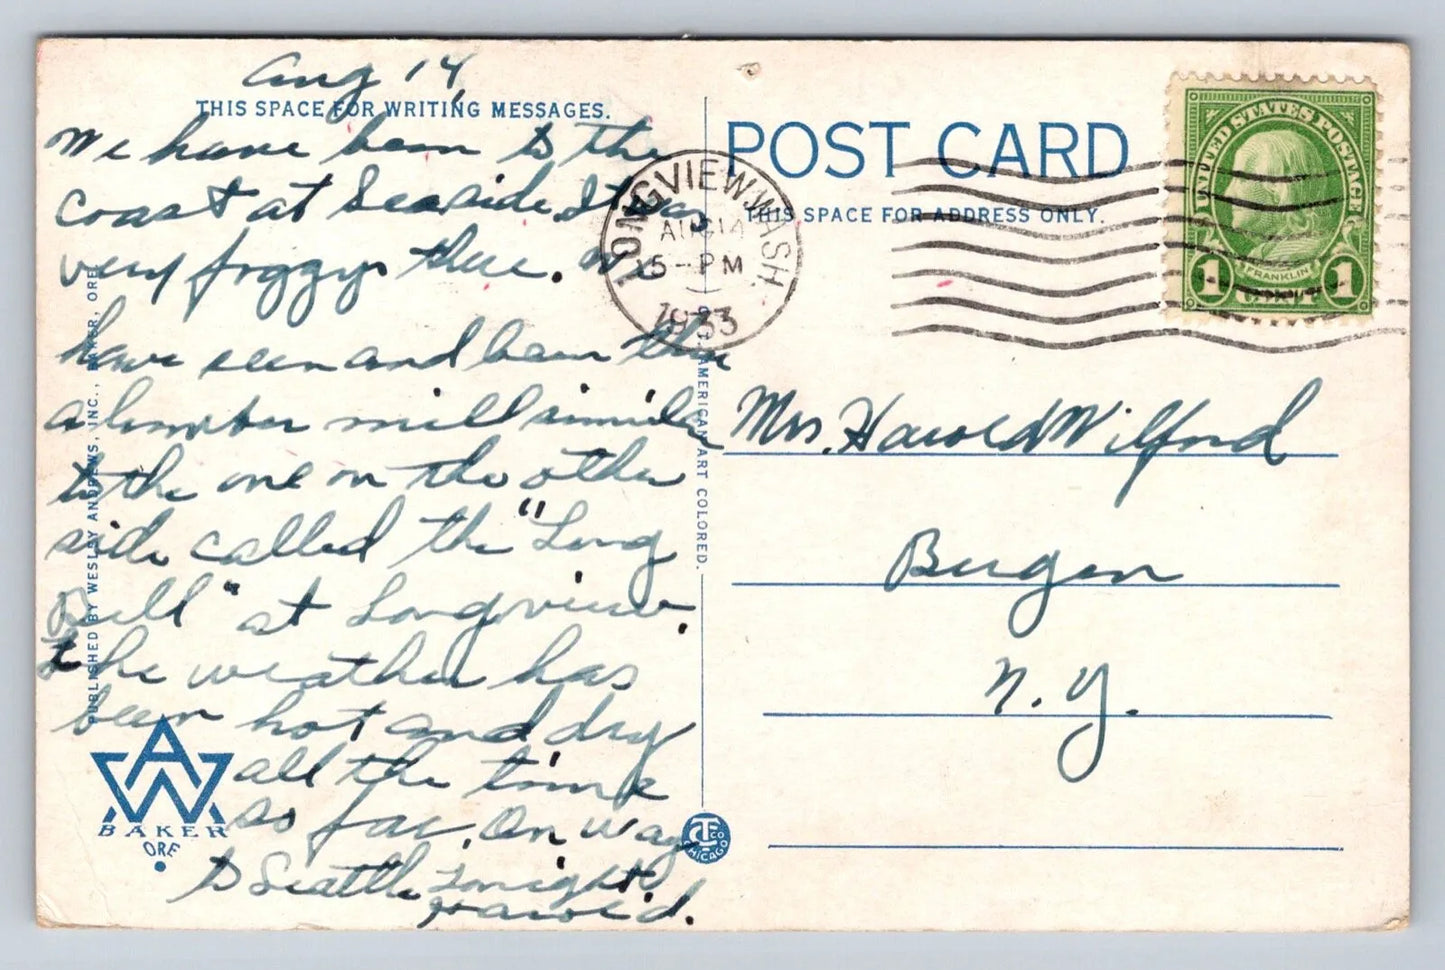 Aug 14,
THIS SPACE FOR WRITING MESSAGES.
We have been to the
coast at Seaside. It was
very foggy there. We
have seen and been thru
a lumber mill similar
to the one on the other
side called the "Long
Bell" at Longview.
The weather has
been hot and dry
all the time
so far. On way
to Seattle tonight
Harold.
PUBLISHED BY WESLEY ANDREWS, INC., BAKER, ORE.
AW
BAKER
ORE
AMERICAN ART COLORED.
CTCO
CHICAGO
POST CARD
THIS SPACE FOR ADDRESS ONLY.
LONGVIEW, WASH.
AUG 14
5-PM
1933
UNITED STATES POSTAGE
FRANKLIN
1 CENT 1
Mrs. Harold Wilford
Bergen
N.Y.